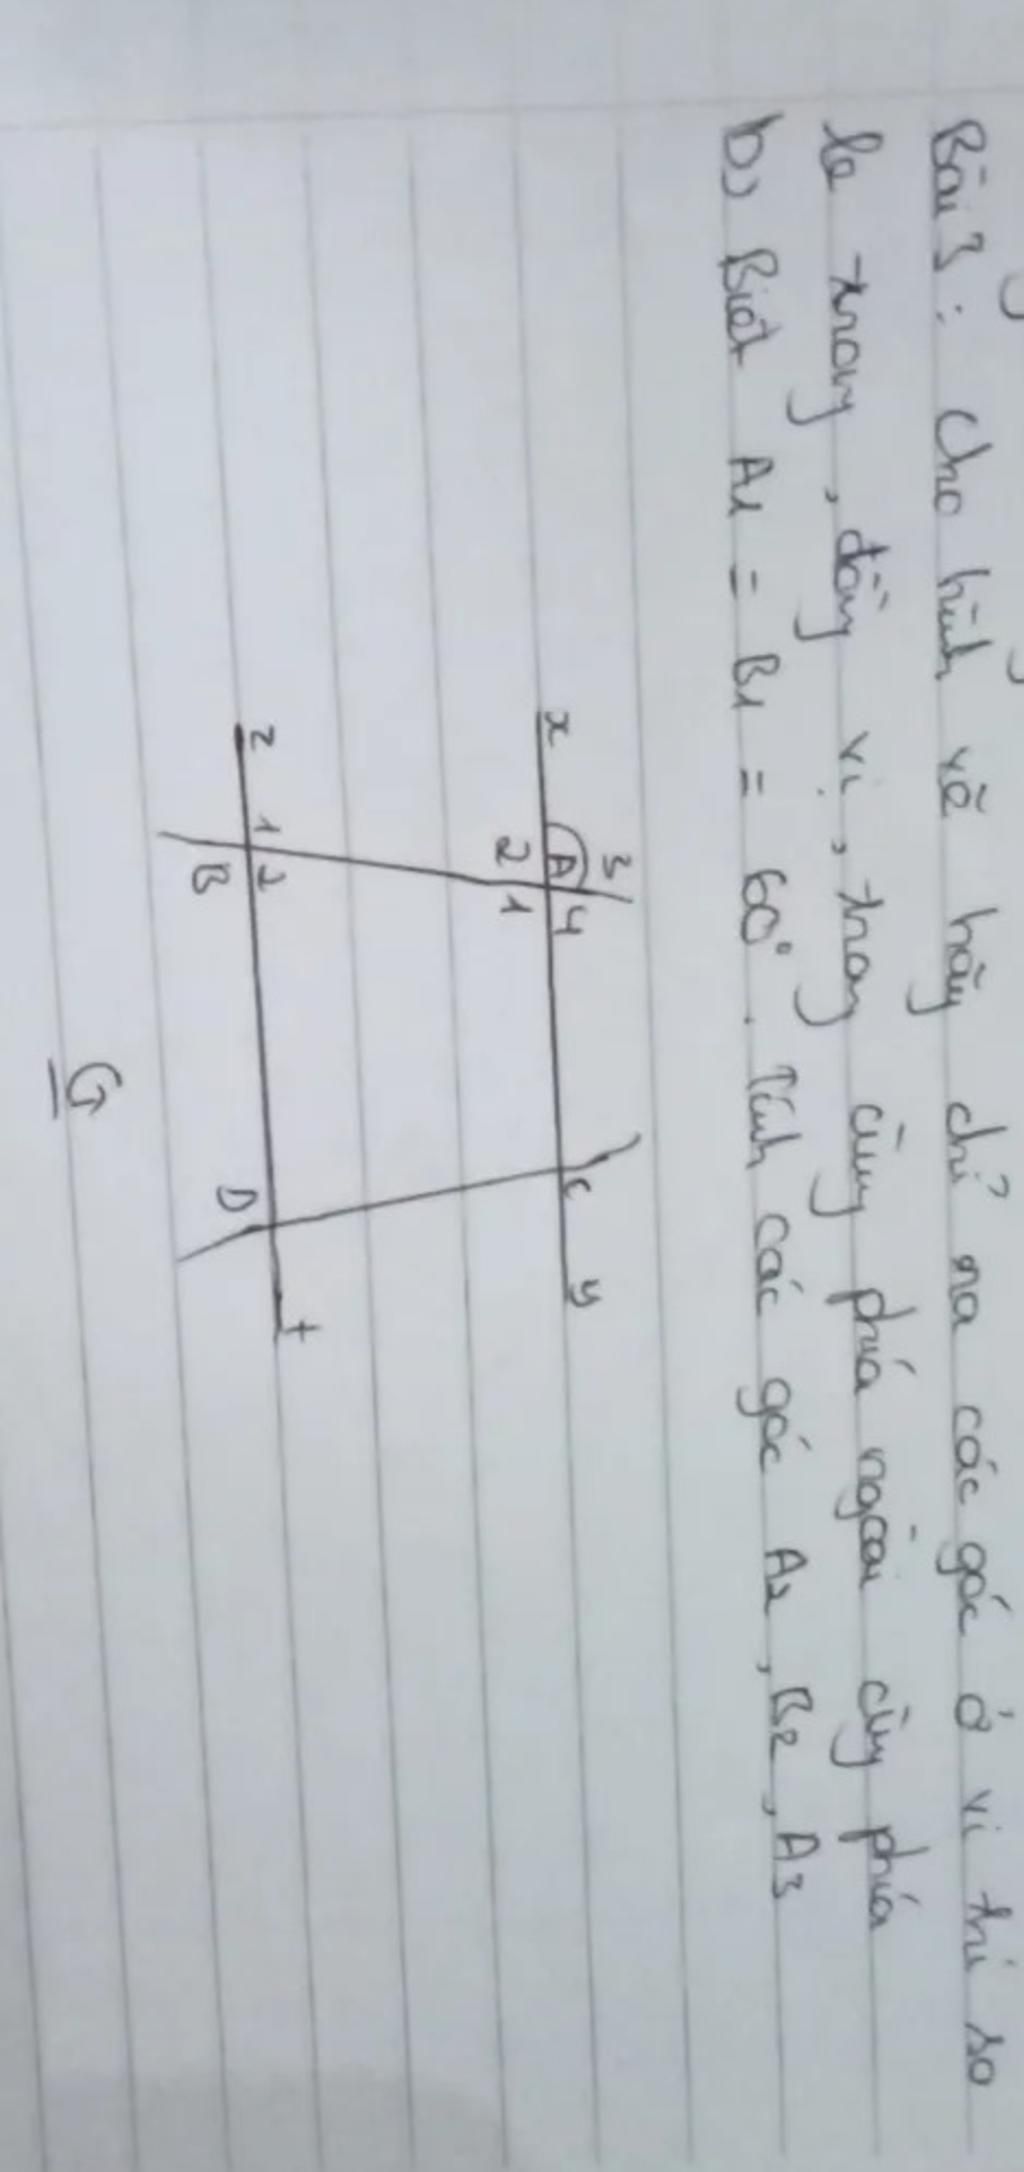 Bài 3 : Cho hình vẽ hãy chỉ ra các góc ở vị trí so
le trong, đồng vị, trong cùng phía ngoài cùng phía
b) Biết A1 = B1 = 60°. Tính các góc A2, B2, A3
x A 3 4 2 1 C y
z 1 2 B D t
G